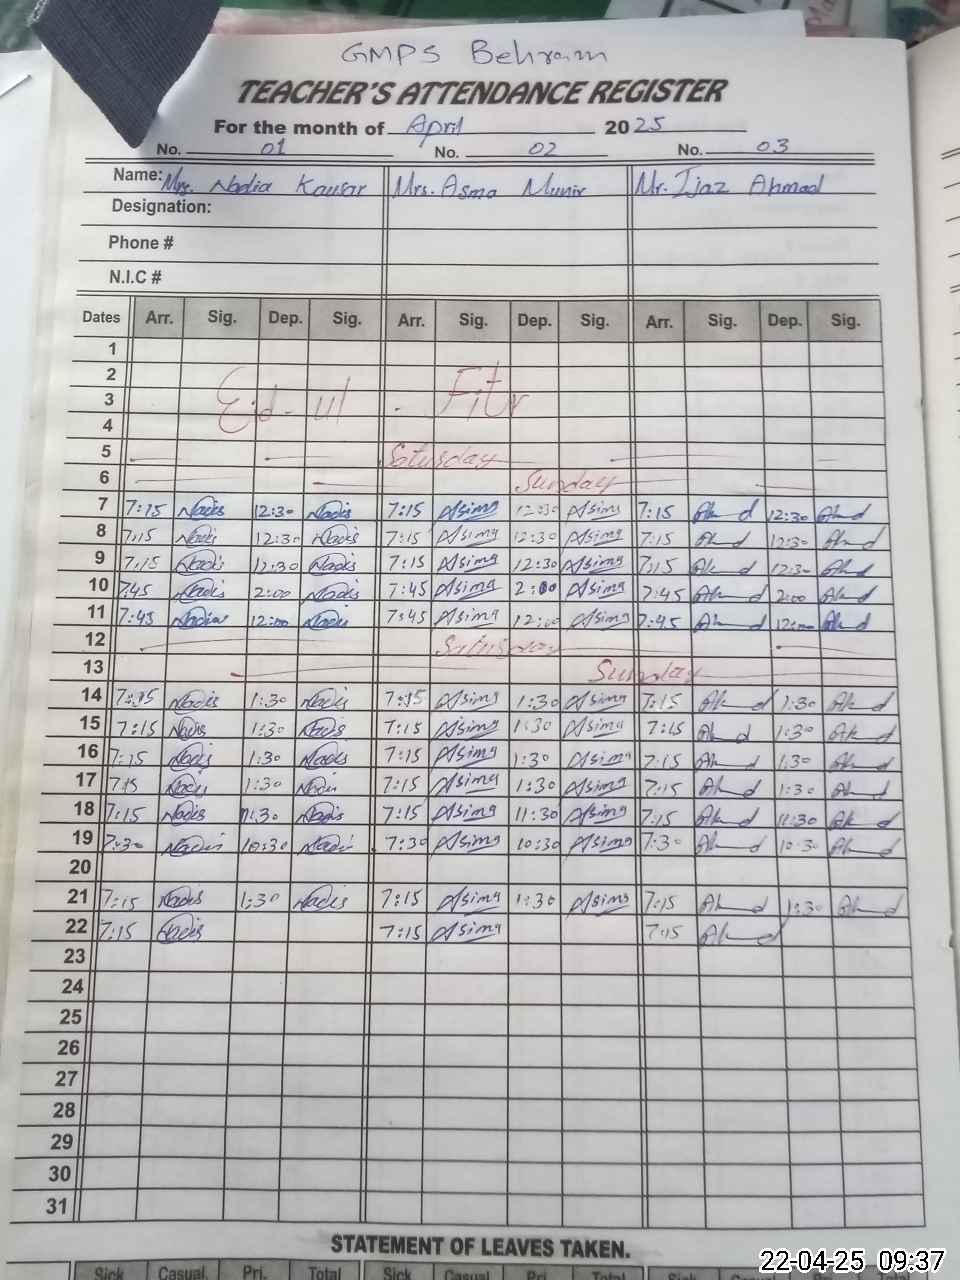 GMPS Behram
TEACHER'S ATTENDANCE REGISTER
For the month of April 2025
No. 01 No. 02 No. 03
Name: Mrs. Nadia Kausar Mrs. Asma Munir Mr. Ijaz Ahmad
Designation:
Phone #
N.I.C #
Dates Arr. Sig. Dep. Sig. Arr. Sig. Dep. Sig. Arr. Sig. Dep. Sig.
1
2
3 Eid-ul-Fitr
4
5 Saturday
6 Sunday
7 7:15 Nadis 12:30 Nadis 7:15 Asima 12:30 Asima 7:15 12:30
8 7:15 Nadis 12:30 Nadis 7:15 Asima 12:30 Asima 7:15 12:30
9 7:15 Nadis 12:30 Nadis 7:15 Asima 12:30 Asima 7:15 12:30
10 7:45 Nadis 2:00 Nadis 7:45 Asima 2:00 Asima 7:45 2:00
11 7:45 Nadia 12:00 Nadis 7:45 Asima 12:00 Asima 7:45 12:00
12 Saturday
13 Sunday
14 7:15 Nadis 1:30 Nadis 7:15 Asima 1:30 Asima 7:15 1:30
15 7:15 Nadis 1:30 Nadis 7:15 Asima 1:30 Asima 7:15 1:30
16 7:15 Nadis 1:30 Nadis 7:15 Asima 1:30 Asima 7:15 1:30
17 7:15 Nadis 1:30 Nadis 7:15 Asima 1:30 Asima 7:15 1:30
18 7:15 Nadis 11:30 Nadis 7:15 Asima 11:30 Asima 7:15 11:30
19 7:30 Nadis 10:30 Nadis 7:30 Asima 10:30 Asima 7:30 10:30
20
21 7:15 Nadis 1:30 Nadis 7:15 Asima 1:30 Asima 7:15 1:30
22 7:15 Nadis 7:15 Asima 7:15
23
24
25
26
27
28
29
30
31
STATEMENT OF LEAVES TAKEN.
Sick Casual. Pri. Total Sick Casual. Pri. Total Sick Casual. Pri. Total
22-04-25 09:37